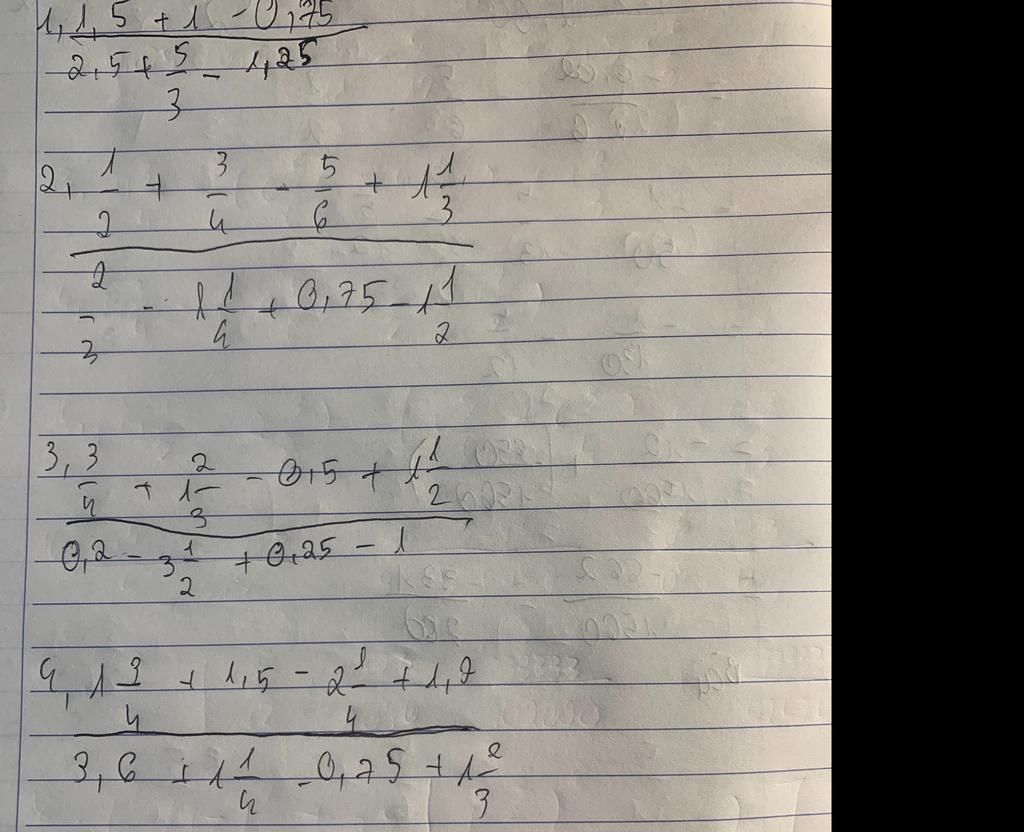 1, 1,5 + 1 - 0,75
2,5 + 5/3 - 1,25
2, 1/2 + 3/4 - 5/6 + 1 1/3
2/3 - 1 1/4 + 0,75 - 1 1/2
3, 3/4 + 1 2/3 - 0,5 + 1 1/2
0,2 - 3 1/2 + 0,25 - 1
4, 1 3/4 + 1,5 - 2 1/4 + 1,7
3,6 + 1 1/4 - 0,75 + 1 2/3